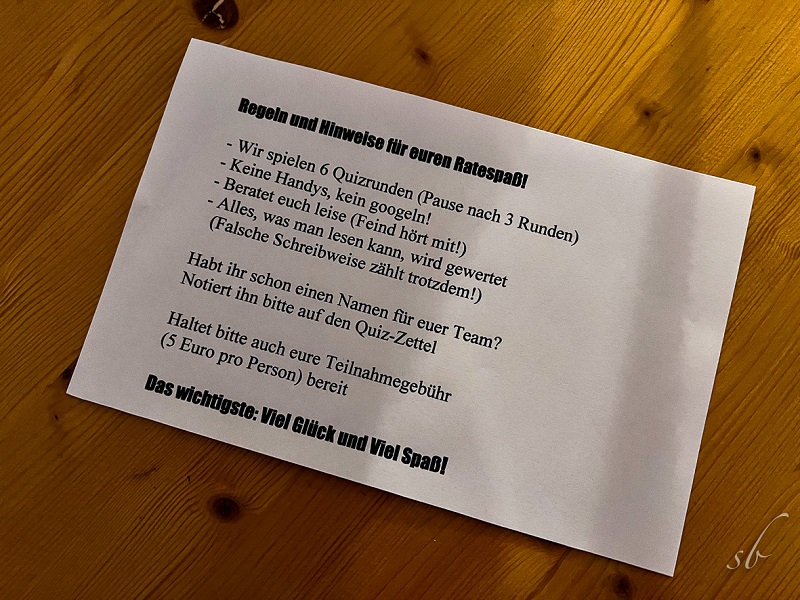 Regeln und Hinweise für euren Ratespaß!
- Wir spielen 6 Quizrunden (Pause nach 3 Runden)
- Keine Handys, kein googeln!
- Beratet euch leise (Feind hört mit!)
- Alles, was man lesen kann, wird gewertet
(Falsche Schreibweise zählt trotzdem!)
Habt ihr schon einen Namen für euer Team?
Notiert ihn bitte auf den Quiz-Zettel
Haltet bitte auch eure Teilnahmegebühr
(5 Euro pro Person) bereit
Das wichtigste: Viel Glück und Viel Spaß!
sb